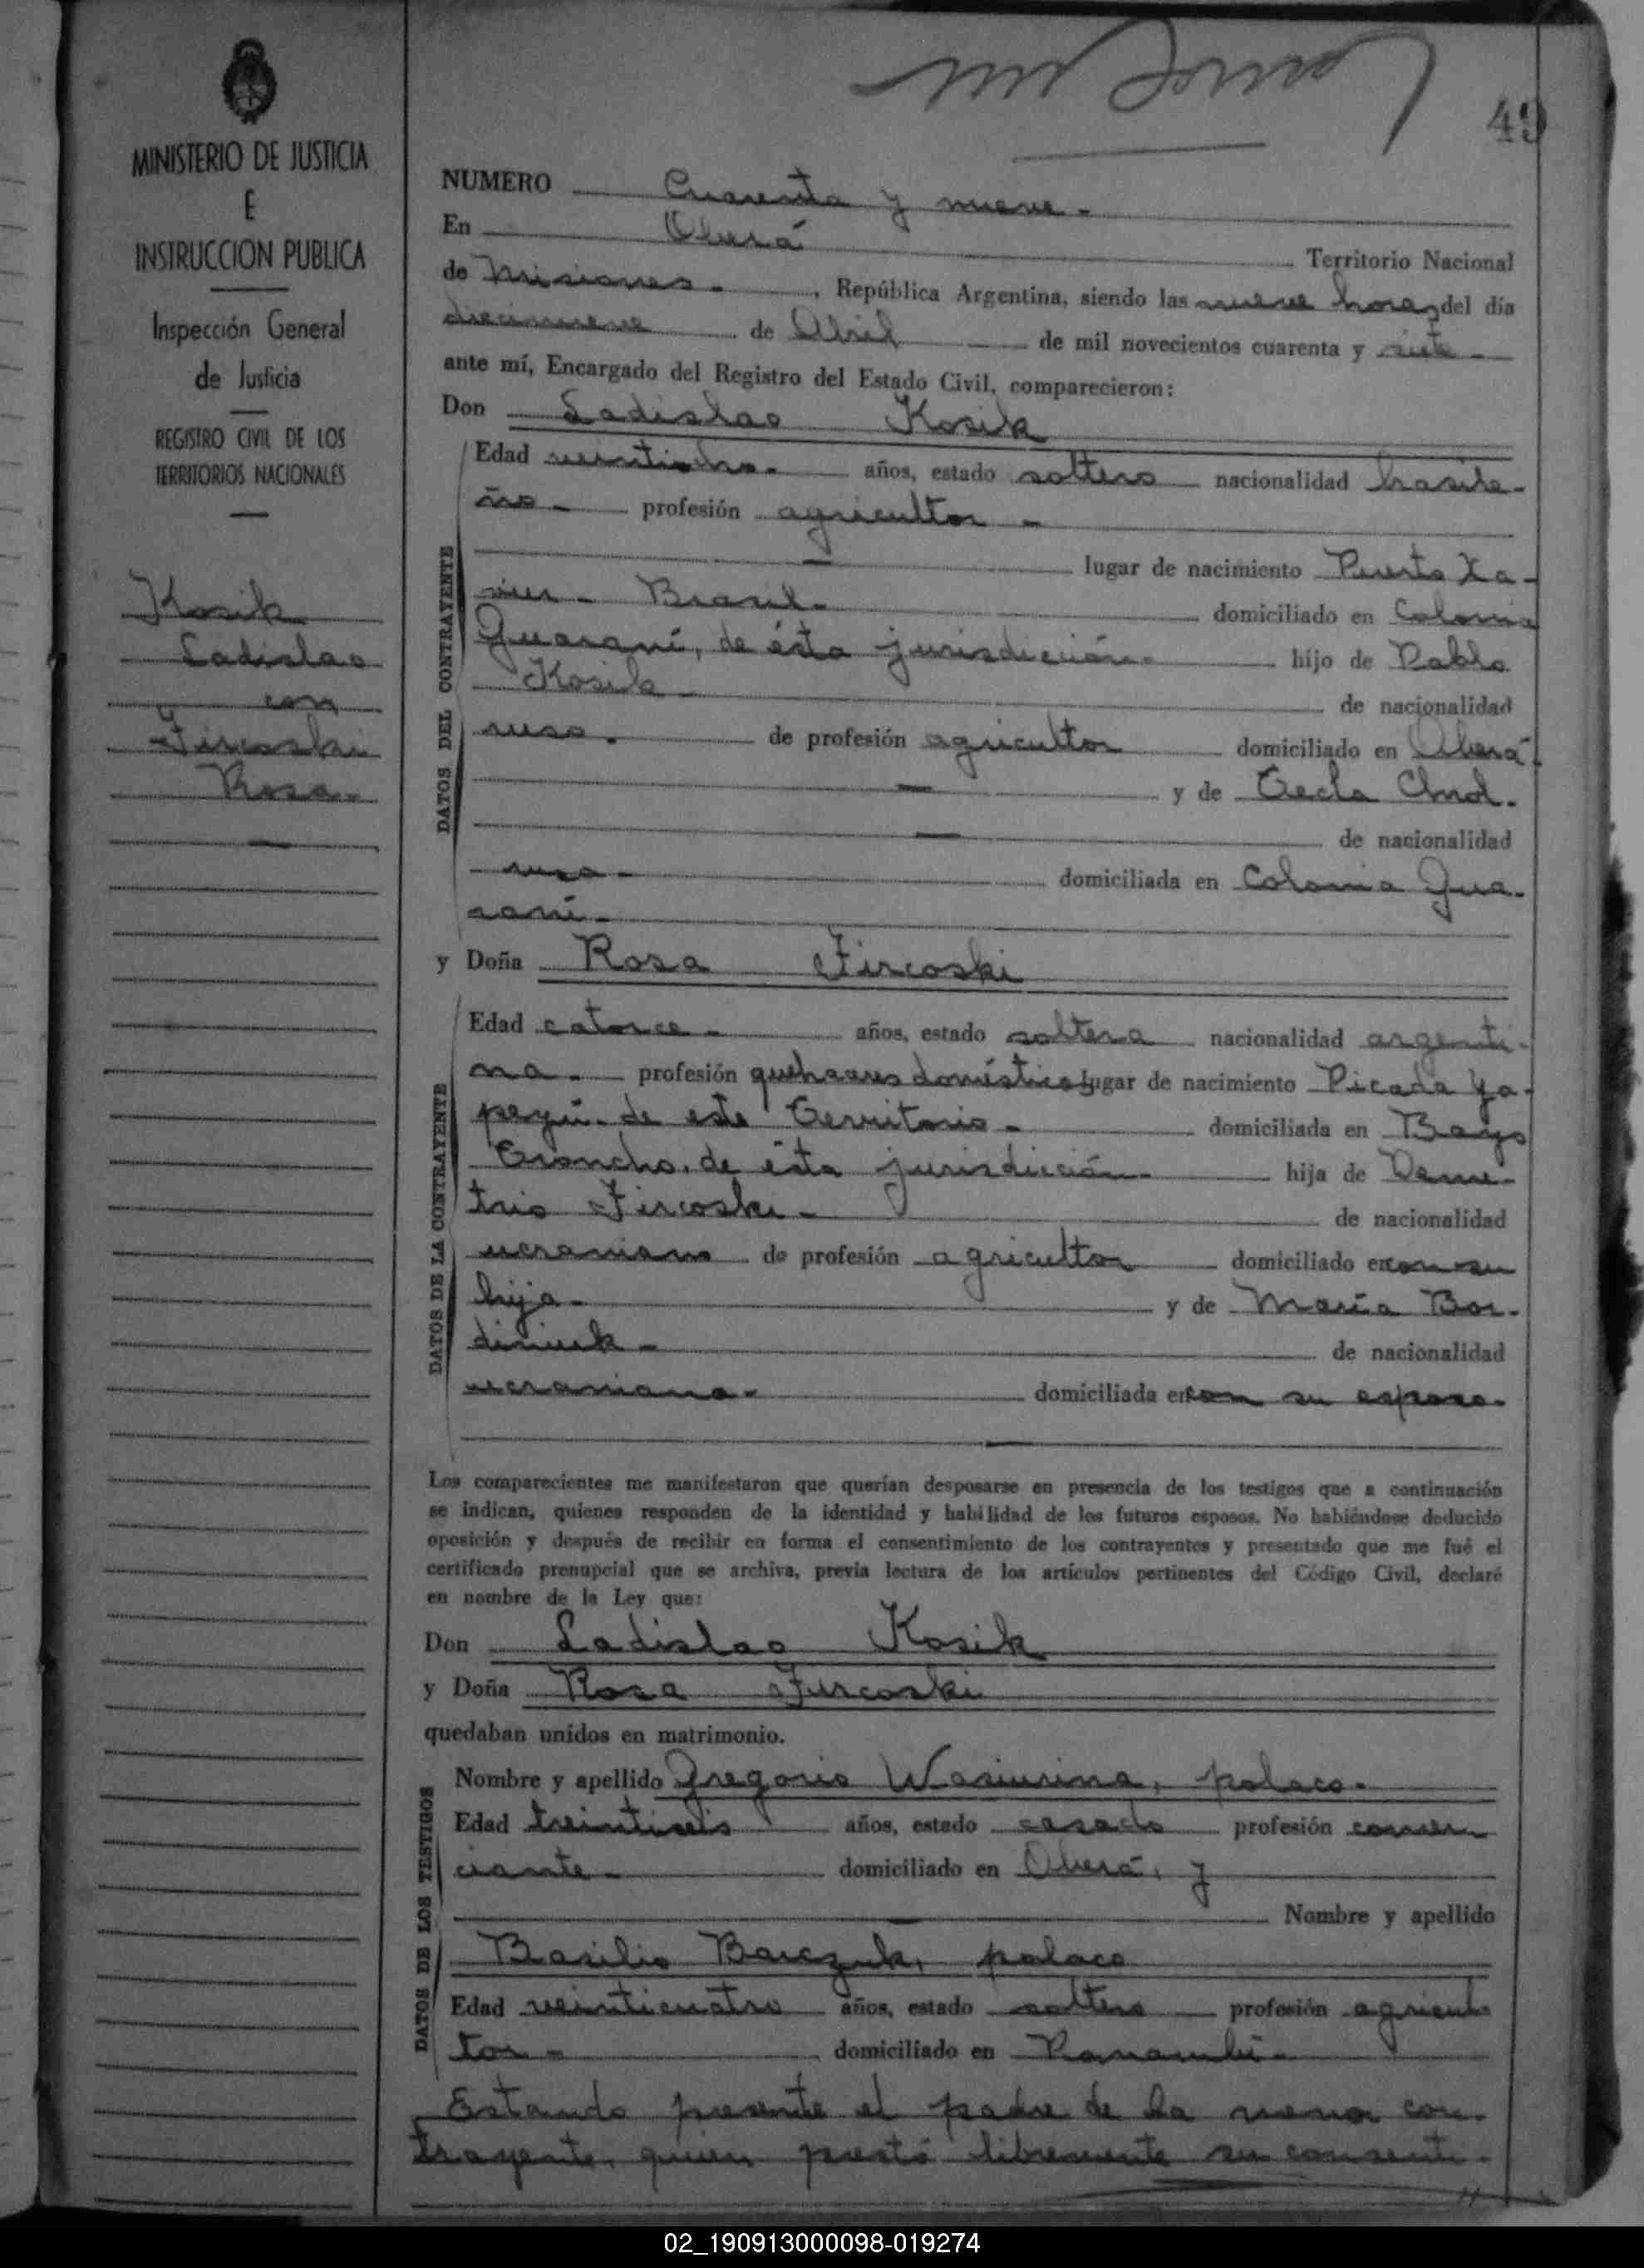 49
MINISTERIO DE JUSTICIA
E
INSTRUCCION PUBLICA
Inspección General
de Justicia
REGISTRO CIVIL DE LOS
TERRITORIOS NACIONALES
Kosik
Ladislao
con
Fircoski
Rosa.-
NUMERO Cuarenta y nueve.-
En Oberá Territorio Nacional
de Misiones.- , República Argentina, siendo las nueve horas del día
diecinueve de Abril de mil novecientos cuarenta y siete.-
ante mí, Encargado del Registro del Estado Civil, comparecieron:
Don Ladislao Kosik
DATOS DEL CONTRAYENTE
Edad veintiocho.- años, estado soltero nacionalidad brasile-
ño.- profesión agricultor -
lugar de nacimiento Puerto Xa-
vier - Brasil.- domiciliado en Colonia
Guaraní, de ésta jurisdicción.- hijo de Pablo
Kosik de nacionalidad
ruso.- de profesión agricultor domiciliado en Oberá
y de Tecla Chol.
de nacionalidad
rusa.- domiciliada en Colonia Gua-
raní.-
y Doña Rosa Fircoski
DATOS DE LA CONTRAYENTE
Edad catorce.- años, estado soltera nacionalidad argenti-
na.- profesión quehaceres domésticos lugar de nacimiento Picada Ya-
peyú de este Territorio.- domiciliada en Bayo
Troncho, de ésta jurisdicción.- hija de Deme-
trio Fircoski.- de nacionalidad
ucraniano de profesión agricultor domiciliado en con su
hija.- y de María Bor-
diniuk.- de nacionalidad
ucraniana.- domiciliada en con su esposo.-
Los comparecientes me manifestaron que querían desposarse en presencia de los testigos que a continuación
se indican, quienes responden de la identidad y habilidad de los futuros esposos. No habiéndose deducido
oposición y después de recibir en forma el consentimiento de los contrayentes y presentado que me fué el
certificado prenupcial que se archiva, previa lectura de los artículos pertinentes del Código Civil, declaré
en nombre de la Ley que:
Don Ladislao Kosik
y Doña Rosa Furcoski
quedaban unidos en matrimonio.
DATOS DE LOS TESTIGOS
Nombre y apellido Gregorio Wasiurina, polaco.-
Edad treintiseis años, estado casado profesión comer
ciante.- domiciliado en Oberá, y
Nombre y apellido
Basilio Barczuk, polaco
Edad veinticuatro años, estado soltero profesión agricul-
tor.- domiciliado en Panambí.-
Estando presente el padre de la menor con-
trayente, quien prestó libremente su consenti-
02_190913000098-019274